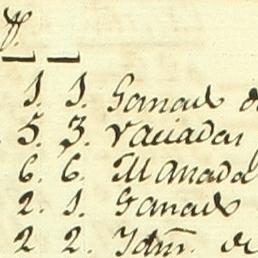 1. 1. Ganado d
5. 3. Vaciadas
6. 6. Manada
2. 1. Ganado
2 2. Idm. de